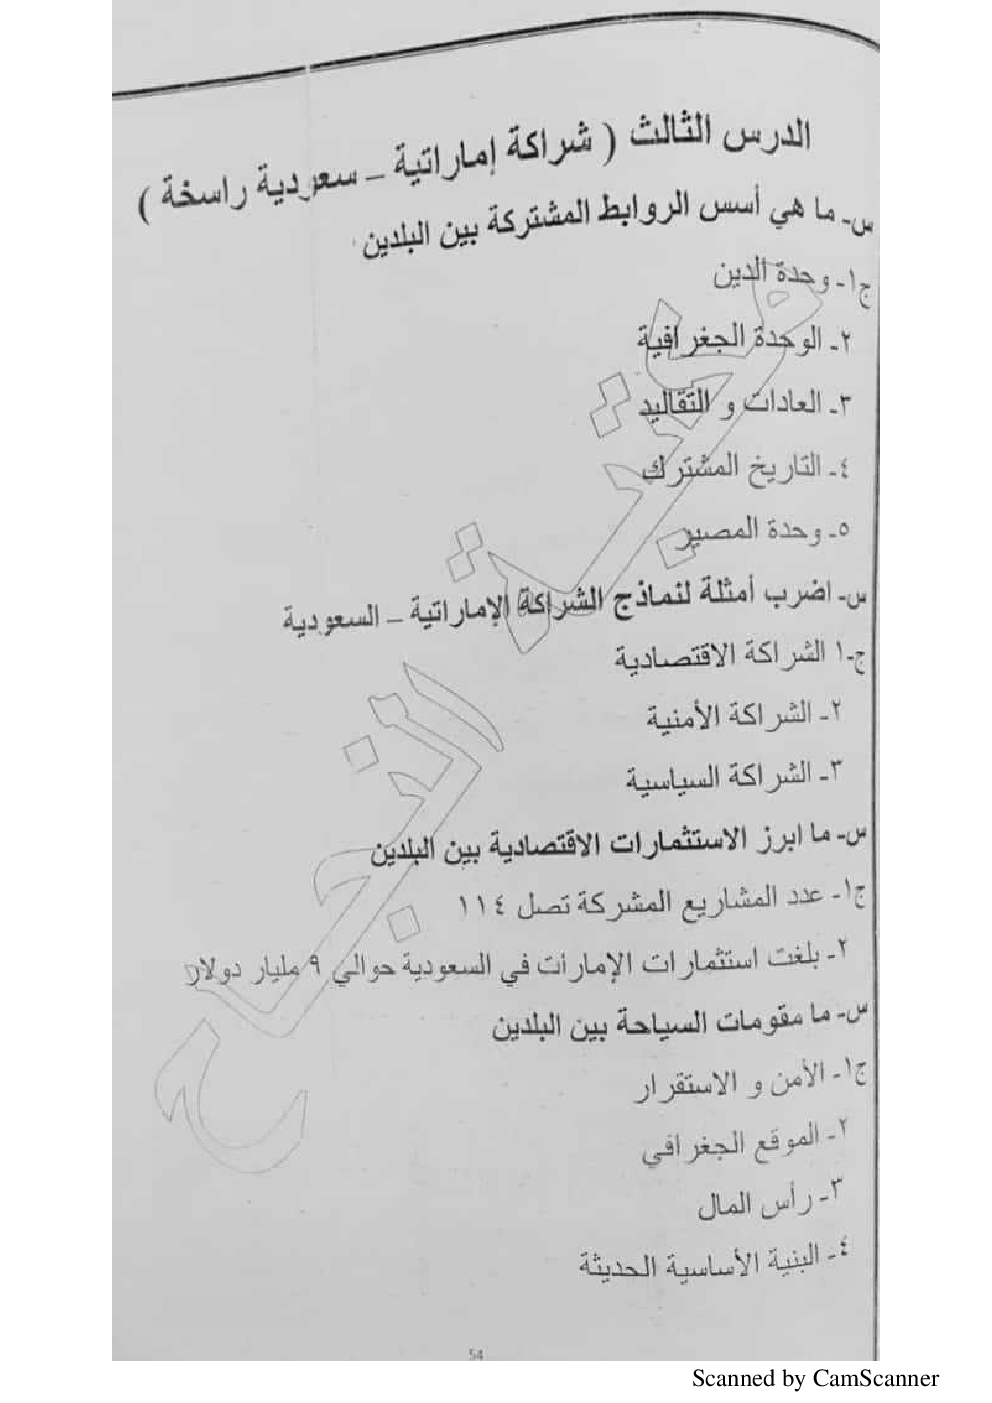 الدرس الثالث ( شراكة إماراتية – سعودية راسخة )
س- ما هي أسس الروابط المشتركة بين البلدين
ج١- وحدة الدين
٢- الوحدة الجغرافية
٣- العادات و التقاليد
٤- التاريخ المشترك
٥- وحدة المصير
س- اضرب أمثلة لنماذج الشراكة الإماراتية – السعودية
ج-١ الشراكة الاقتصادية
٢- الشراكة الأمنية
٣- الشراكة السياسية
س- ما ابرز الاستثمارات الاقتصادية بين البلدين
ج١- عدد المشاريع المشركة تصل ١١٤
٢- بلغت استثمارات الإمارات في السعودية حوالي ٩ مليار دولار
س- ما مقومات السياحة بين البلدين
ج١- الأمن و الاستقرار
٢- الموقع الجغرافي
٣- رأس المال
٤- البنية الأساسية الحديثة
مكتبة النجاح
54
Scanned by CamScanner